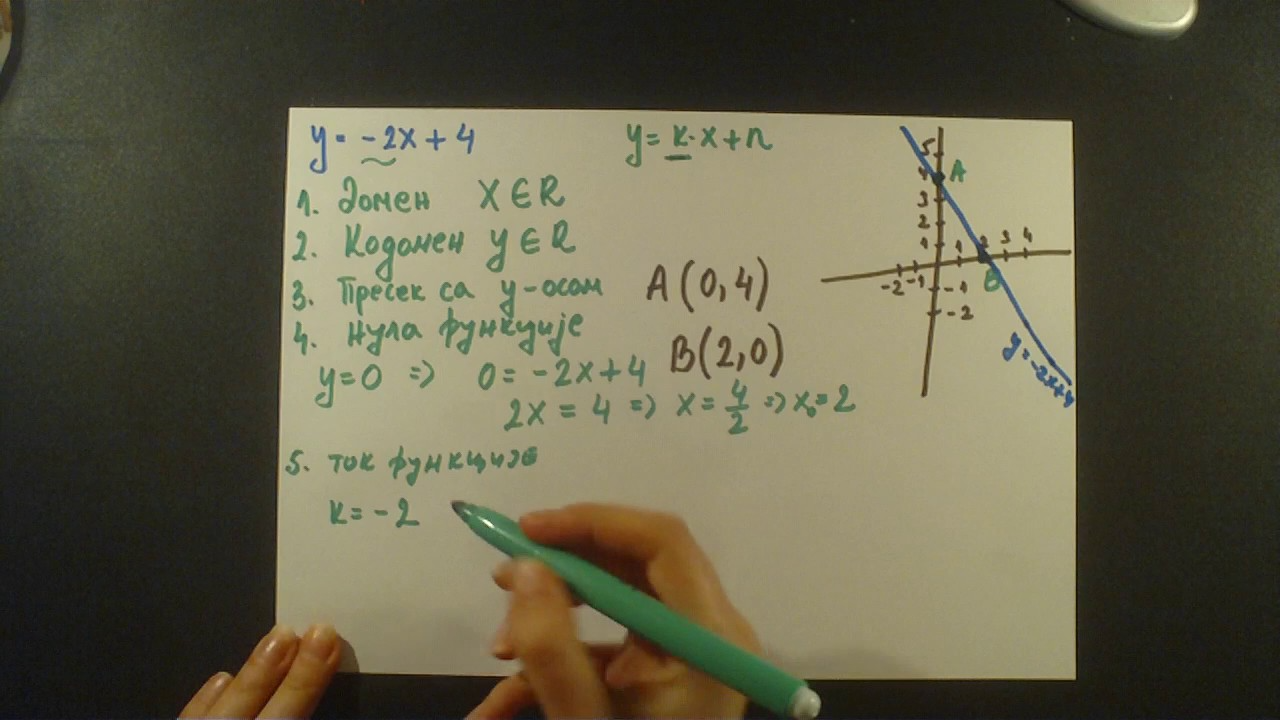 y = -2x + 4
y = k·x + n
1. Домен x ∈ R
2. Кодомен y ∈ R
3. Пресек са y-осом A(0,4)
4. Нула функције B(2,0)
y=0 => 0 = -2x + 4
2x = 4 => x = 4/2 => x₀ = 2
5. ток функције
k = -2
5
4 A
3
2
1 1 2 3 4
-2 -1 B
-1
-2
y = -2x+4